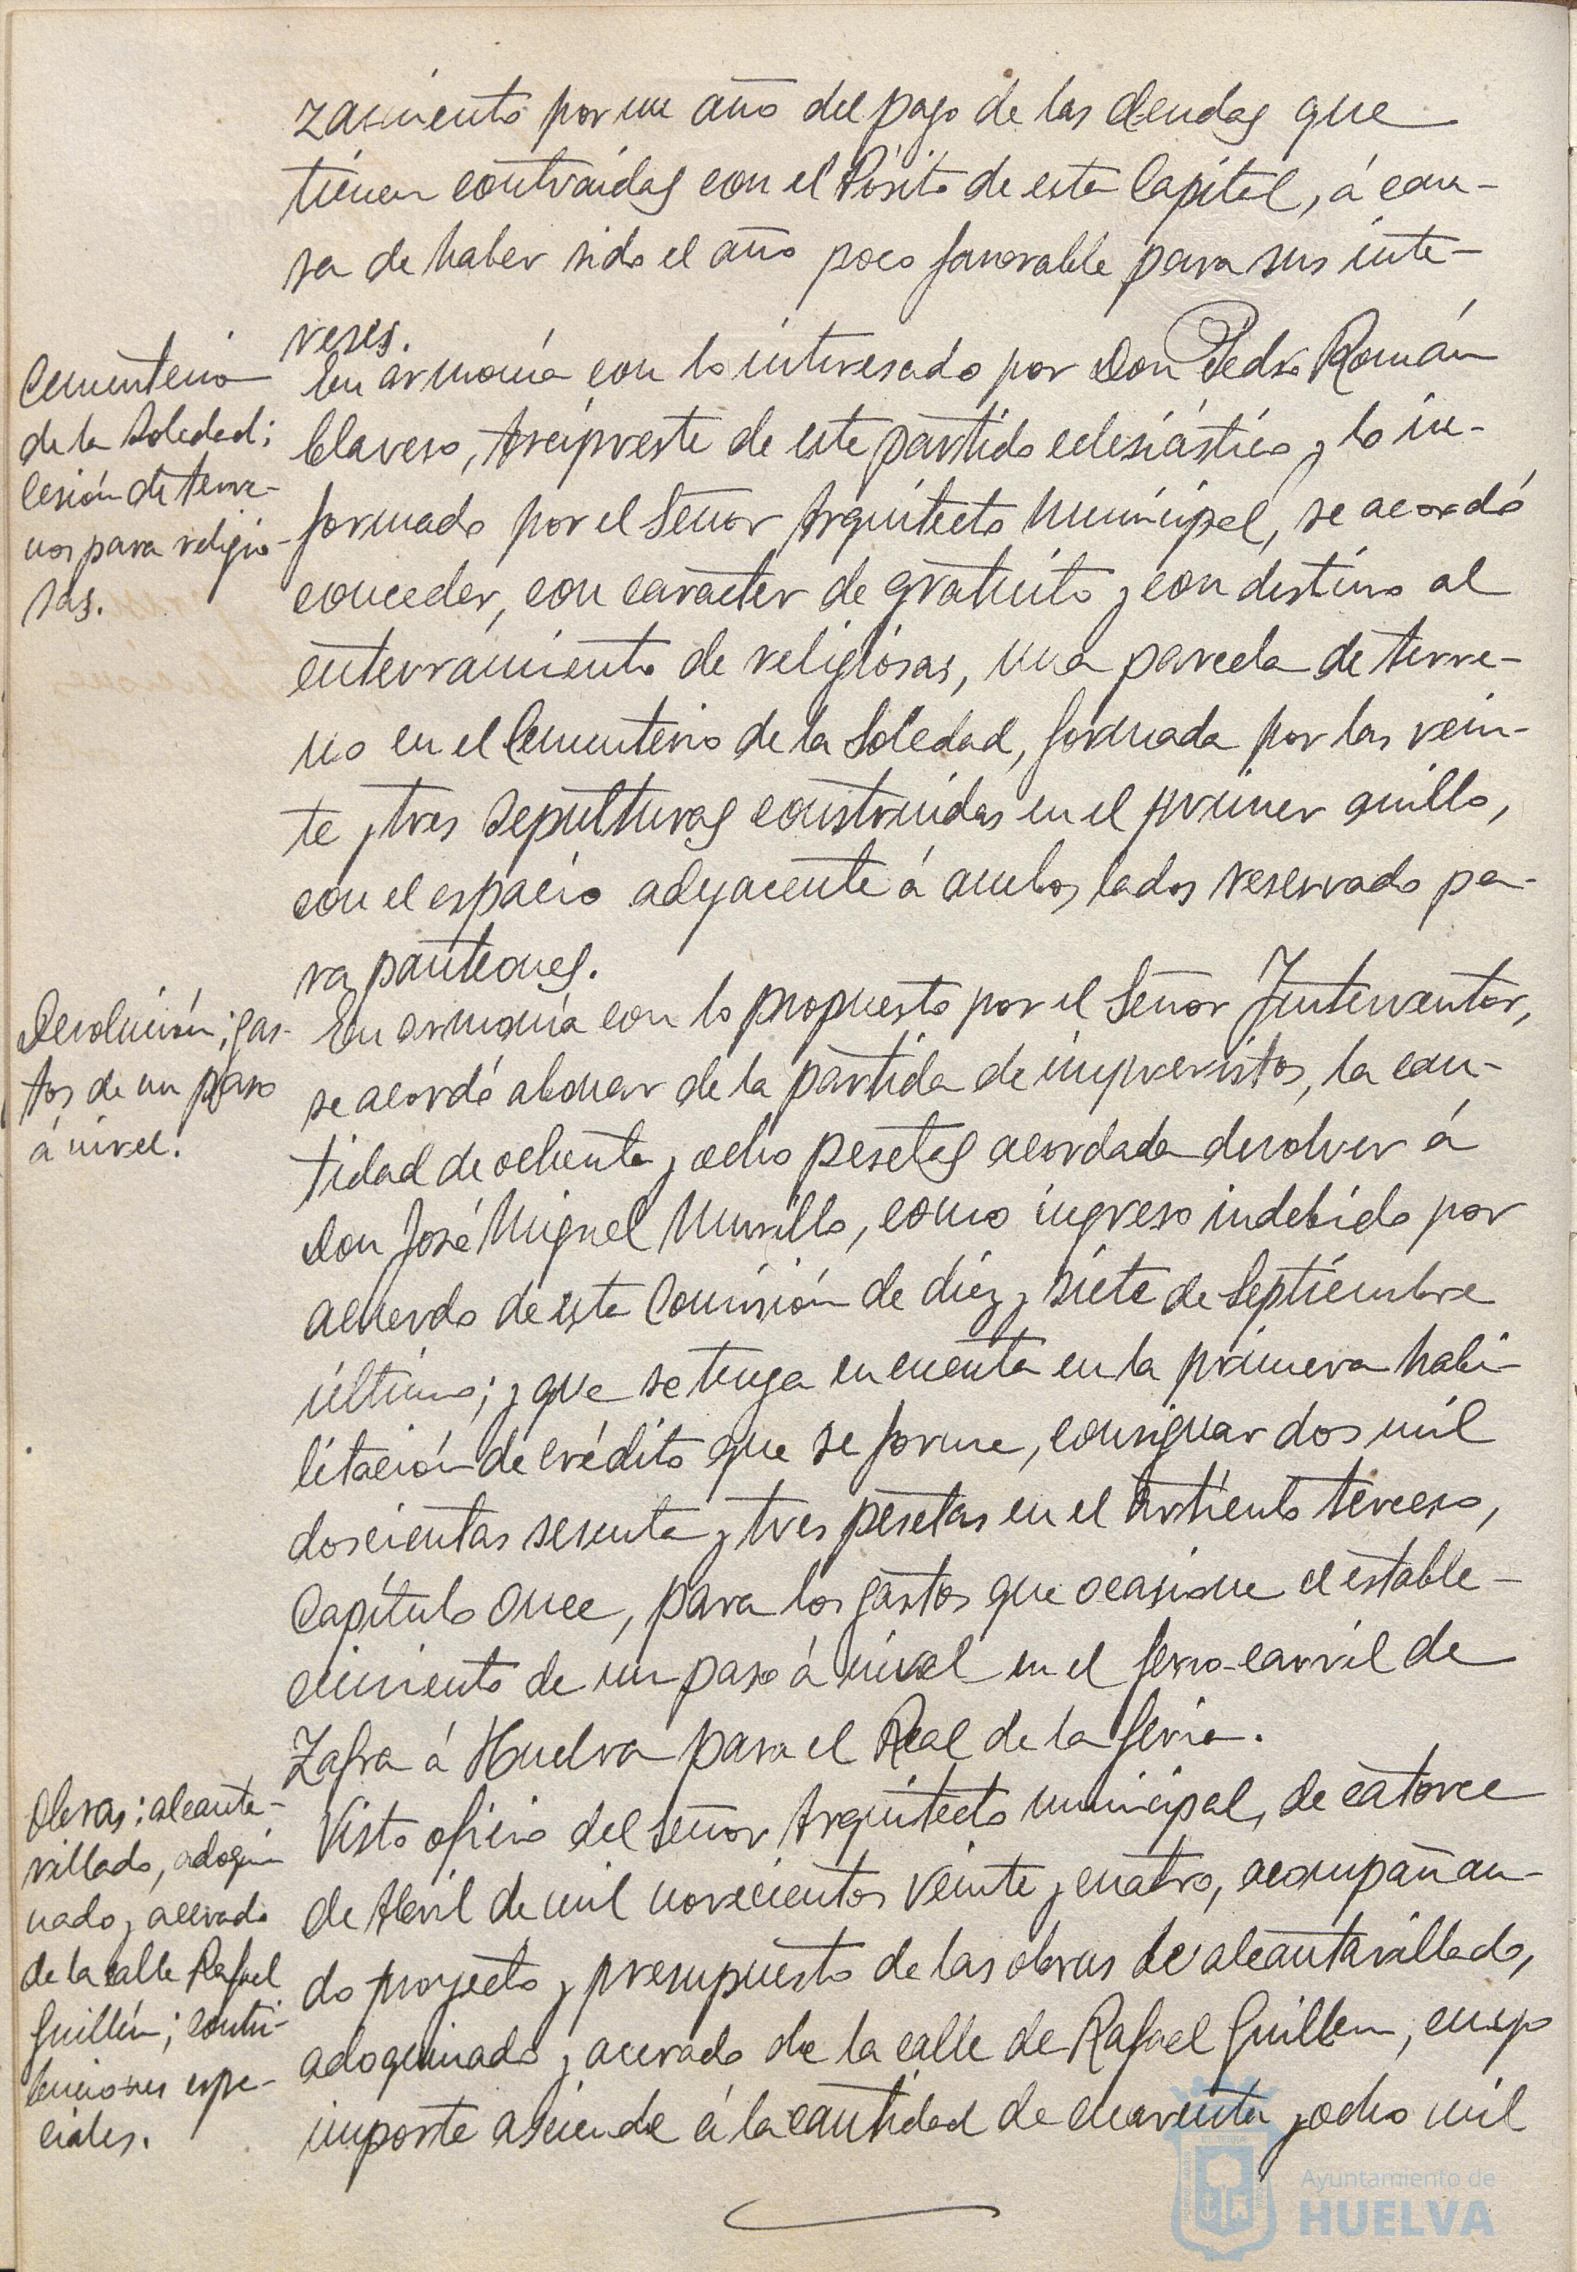 zamiento por un año del pago de las deudas que
tienen contraidas con el Pósito de esta Capital, á cau-
sa de haber sido el año poco favorable para sus inte-
reses.
Cementerio
de la Soledad;
Cesión de terre-
nos para religio-
sas.
En armonía con lo interesado por Don Pedro Román
Clavero, Arcipreste de este partido eclesiástico y lo in-
formado por el Señor Arquitecto Municipal, se acordó
conceder, con caracter de gratuito y con destino al
enterramiento de religiosas, una parcela de terre-
no en el Cementerio de la Soledad, formada por las vein-
te y tres sepulturas construidas en el primer anillo,
con el espacio adyacente á ambos lados reservado pa-
ra panteones.
Devolución; gas-
tos de un paso
á nivel.
En armonía con lo propuesto por el Señor Interventor,
se acordó abonar de la partida de imprevistos, la can-
tidad de ochenta y ocho pesetas acordada devolver á
Don José Miguel Murillo, como ingreso indebido por
acuerdo de esta Comisión de diez y siete de Septiembre
último; y que se tenga en cuenta en la primera habi-
litación de crédito que se forme, consignar dos mil
doscientas sesenta y tres pesetas en el Artículo tercero,
Capítulo once, para los gastos que ocasione el estable-
cimiento de un paso á nivel en el ferro-carril de
Zafra á Huelva para el Real de la feria.
Obras: alcanta-
rillado, adoqui
nado y acerado
de la calle Rafael
Guillén; contri-
buciones espe-
ciales.
Visto oficio del Señor Arquitecto municipal, de catorce
de Abril de mil novecientos veinte y cuatro, acompañan-
do proyecto y presupuesto de las obras de alcantarillado,
adoquinado y acerado de la calle de Rafael Guillen, cuyo
importe asciende á la cantidad de cuarenta y ocho mil
Ayuntamiento de
HUELVA